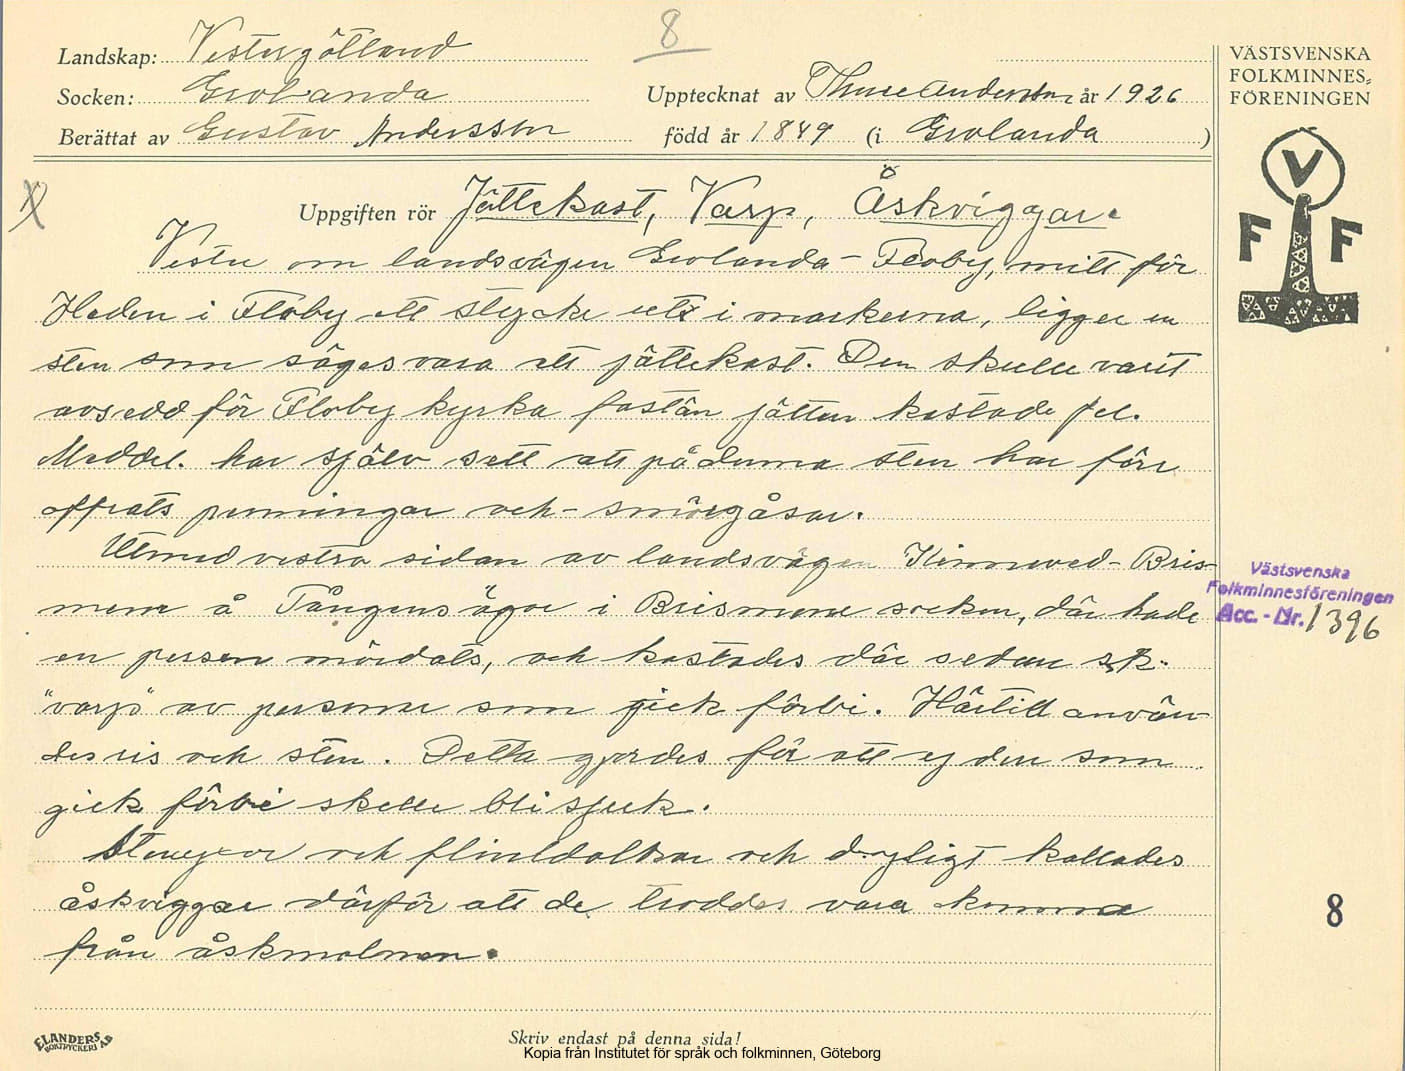 8
Landskap: Vestergötland
Socken: Grolanda
Upptecknat av Thure Andersson år 1926
Berättat av Gustav Andersson född år 1849 (i Grolanda)
VÄSTSVENSKA
FOLKMINNES-
FÖRENINGEN
V
F F
Uppgiften rör Jättekast, Varp, Åskviggar.
Vester om landsvägen Grolanda - Floby, mitt för
Heden i Floby ett stycke ute i markerna, ligger en
sten som säges vara ett jättekast. Den skulle varit
avsedd för Floby kyrka fastän jätten kastade fel.
Meddel. har själv sett att på denna sten har förr
offrats penningar och smörgåsar.
Utmed vestra sidan av landsvägen Kinneved - Bris-
mene å Tångens ägor i Brismene socken, där hade
en person mördats, och kastades där sedan s.k.
"varp" av personer som gick förbi. Härtill använ-
des ris och sten. Detta gjordes för att ej den som
gick förbi skulle bli sjuk.
Stenyxor och flintdolkar och dyligt kallades
åskviggar därför att de troddes vara komna
från åskmolnen.
Västsvenska
Folkminnesföreningen
Acc. - Nr. 1396
8
ELANDERS
BOKTRYCKERI AB
Skriv endast på denna sida!
Kopia från Institutet för språk och folkminnen, Göteborg